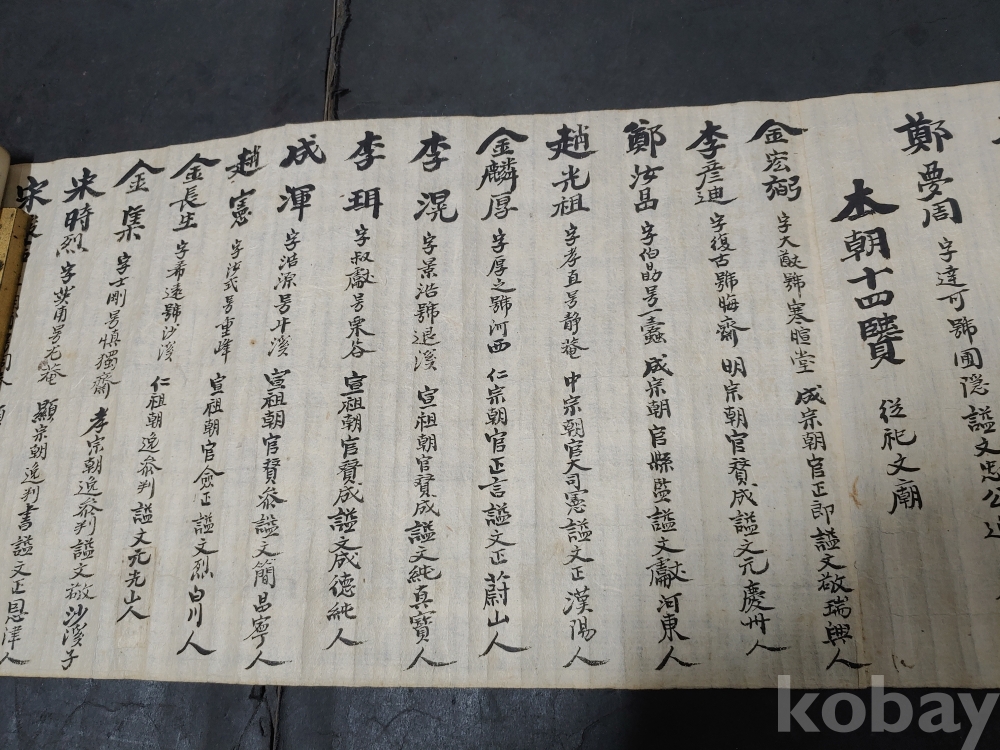 鄭夢周 字達可號圃隠謚文忠公
本朝十四賢 從祀文廟
金宏弼 字大猷號寒暄堂 成宗朝官正郎謚文敬瑞興人
李彦迪 字復古號晦齋 明宗朝官賛成謚文元慶州人
鄭汝昌 字伯勗号一蠹 成宗朝官縣監謚文獻河東人
趙光祖 字孝直号静菴 中宗朝官大司憲謚文正漢陽人
金麟厚 字厚之號河西 仁宗朝官正言謚文正蔚山人
李滉 字景浩號退溪 宣祖朝官賛成謚文純真寶人
李珥 字叔獻号栗谷 宣祖朝官賛成謚文成德純人
成渾 字浩源号牛溪 宣祖朝官賛參謚文簡昌寧人
趙憲 字汝式号重峰 宣祖朝官僉正謚文烈白川人
金長生 字希遠號沙溪 仁祖朝逸參判謚文元光山人
金集 字士剛号慎獨齋 孝宗朝逸參判謚文敬沙溪子
宋時烈 字英甫号尤菴 顯宗朝逸判書謚文正恩津人
宋
kobay